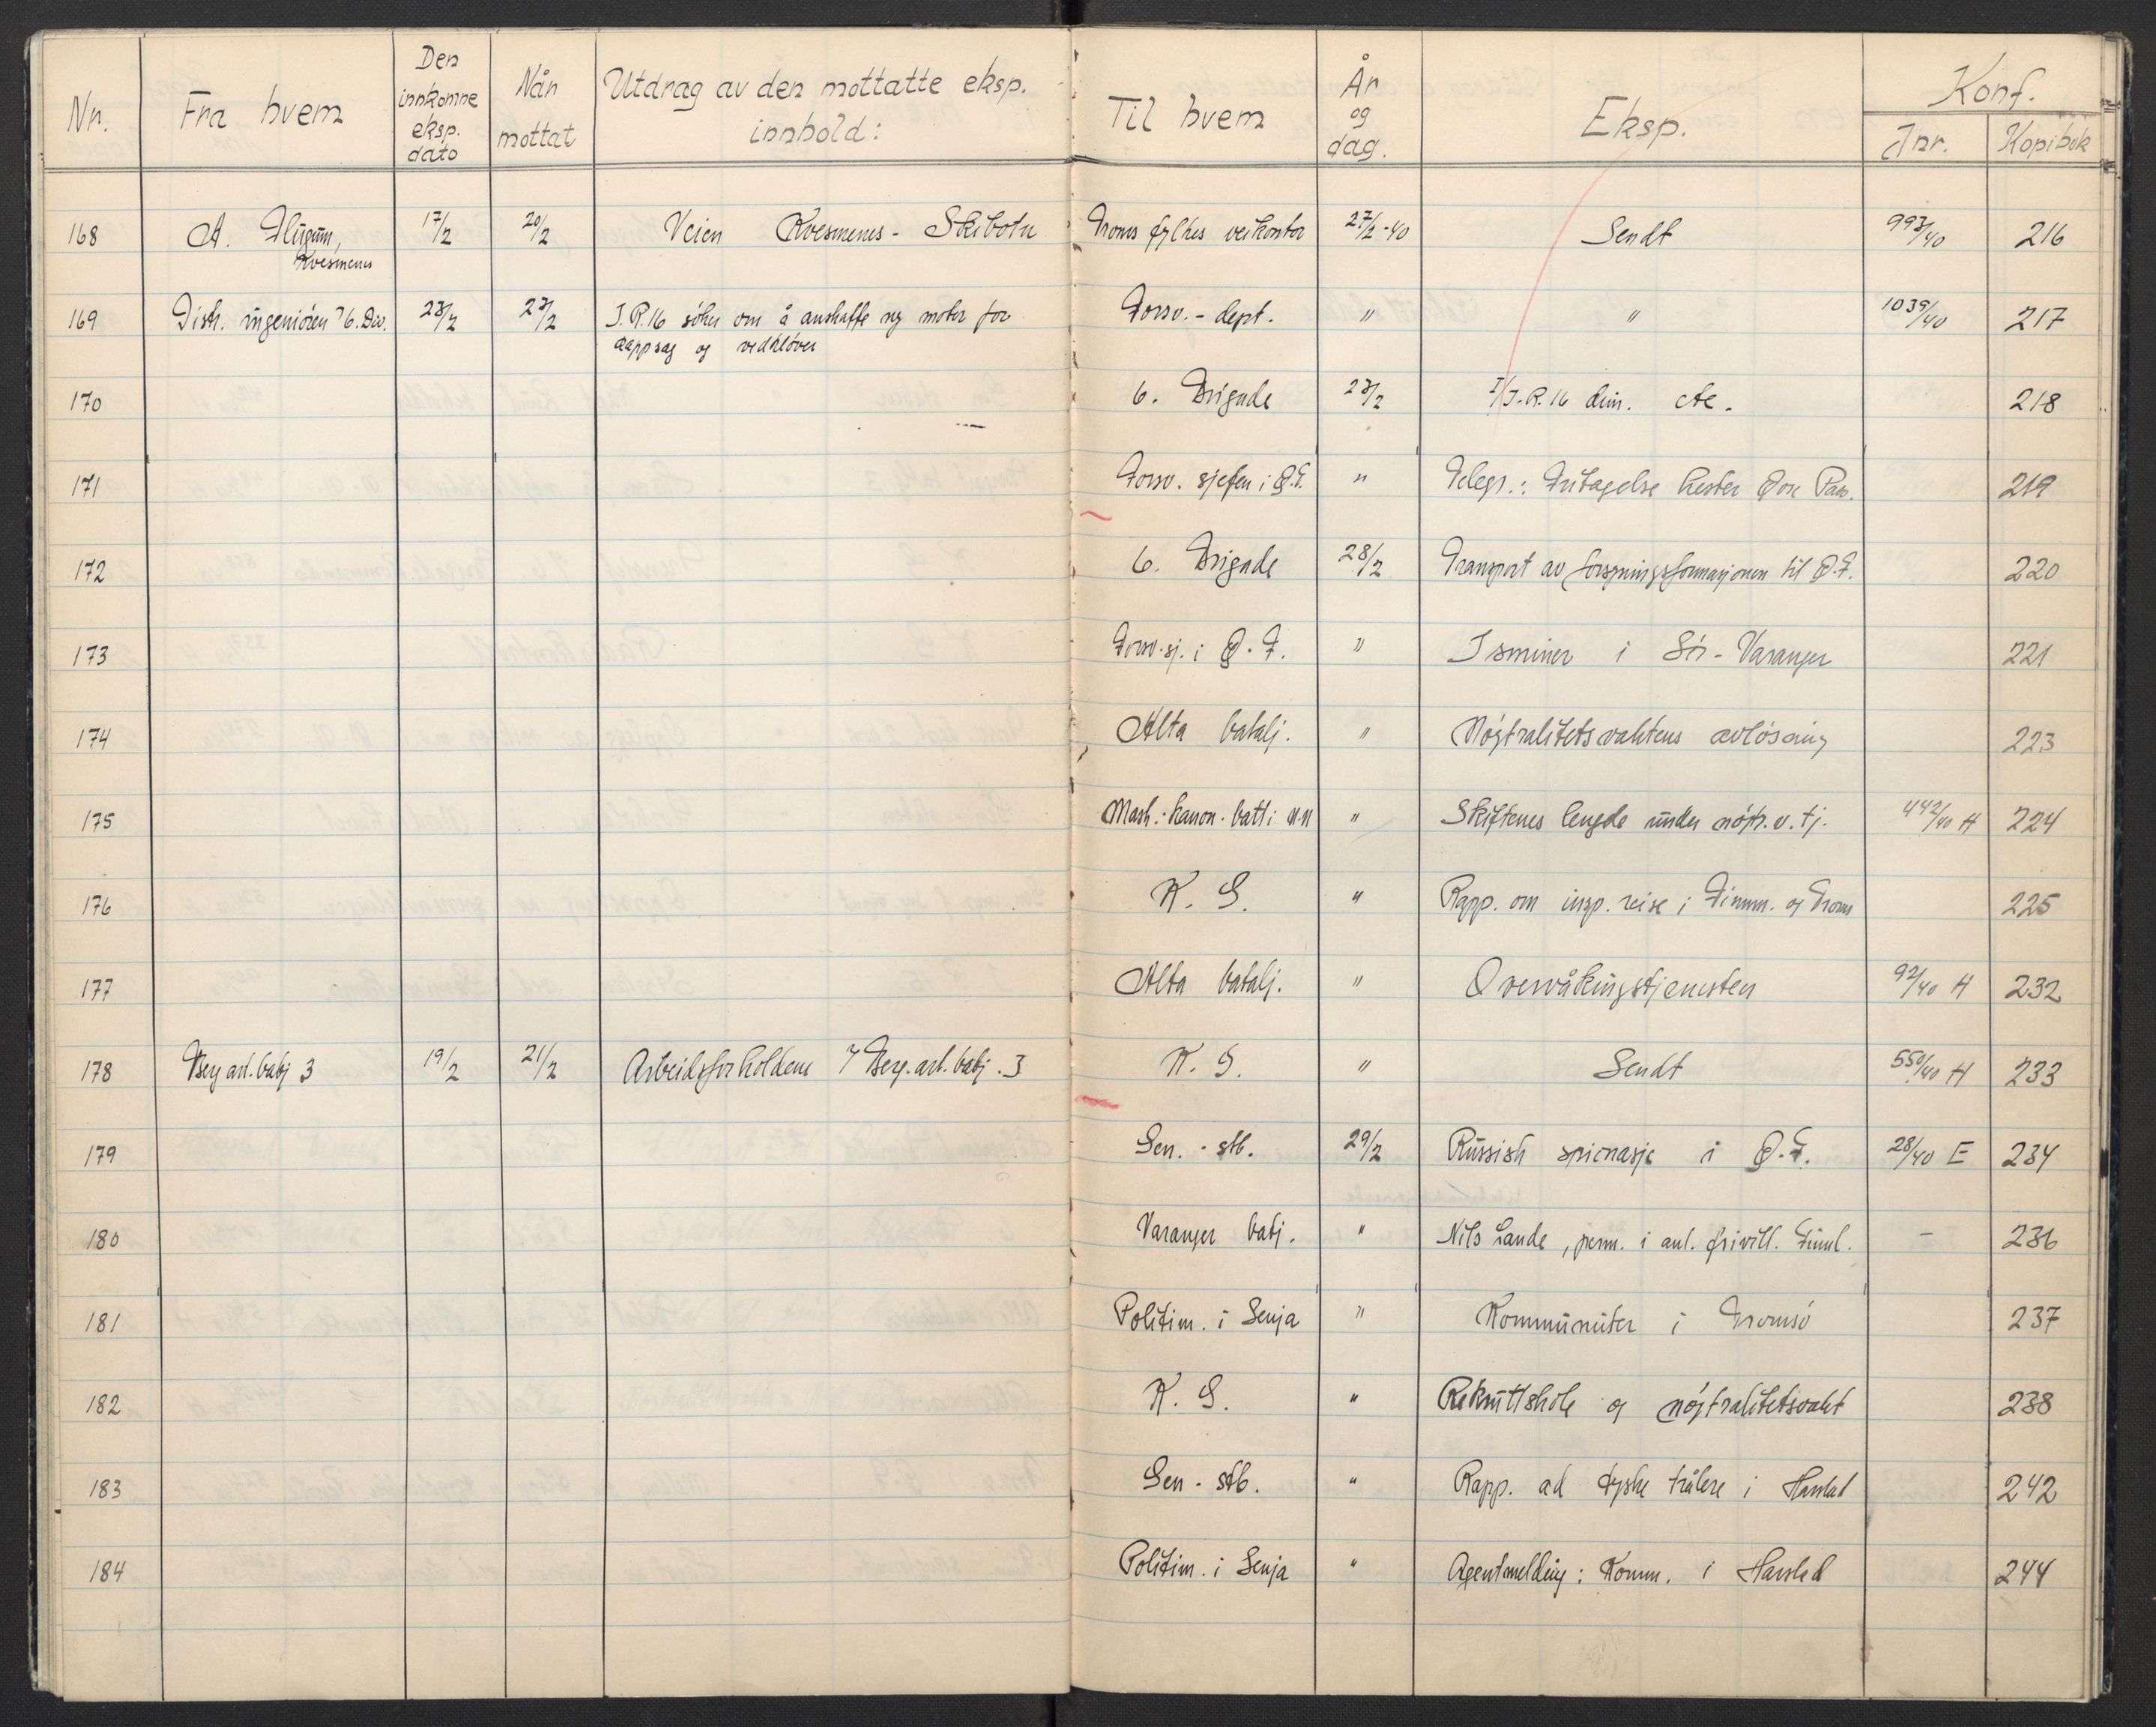 Nr. Fra hvem Den innkomne eksp. dato Når mottat Utdrag av den mottatte eksp. innhold: Til hvem År og dag. Eksp. Konf. Jnr. Kopibok
168 A. Kvesmenes 17/2 20/2 Veien Kvesmenes - Skibotn Troms fylkes veikontor 27/2-40 Sendt 993/40 216
169 Distr. ingeniören 6. Div. 23/2 23/2 I.R.16 söker om å anskaffe ny motor for
kappsag og vedklöver Forsv. - dept. " " 1039/40 217
170 6. Brigade 23/2 I/I.R.16 dim. 218
171 Forsv. sjefen i Ø.F. " Telegr.: Fritagelse hester 219
172 6. Brigade 28/2 Transport av til Ø.F. 220
173 Forsv.sj. i Ø.F. " Isminer i Sör-Varanger 221
174 Alta batalj. " Nöytralitetsvaktens avlösning 223
175 Mask.-kanon-batt i " Skiftenes lengde under nöytr.v.tj. 442/40 H 224
176 K.G. " Rapp. om insp. reise i Finnm. og Troms 225
177 Alta batalj. " Overvåkingstjenesten 92/40 H 232
178 Berg.art.batj 3 19/2 21/2 Arbeidsforholdene Berg.art.batj. 3 K.G. " Sendt 550/40 H 233
179 Gen.-stb. 29/2 Russisk spionasje i Ø.F. 28/40 E 234
180 Varanger batj. " Nils Lande, perm. i anl. frivill. Finnl. - 236
181 Politim. i Senja " Kommunister i Tromsö 237
182 K.G. " Rekruttskole og nöytralitetsvakt 238
183 Gen-stb. " Rapp. ad tyske trålere i Harstad 242
184 Politim. i Senja " Agentmelding: Komm. i Harstad 244